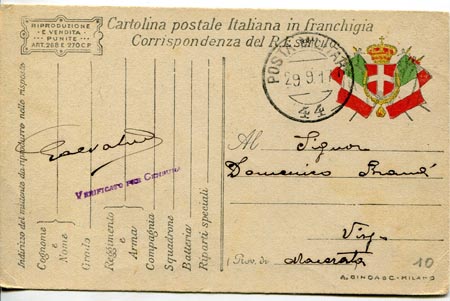 RIPRODUZIONE
E VENDITA
PUNITE
ART. 268 E 270 C.P.
Cartolina postale Italiana in franchigia
Corrispondenza del R. Esercito
POSTA MILITARE
29.9.17
44
Al Signor
Domenico
VERIFICATO PER CENSURA
Macerata
Prov. de
Indirizzo del mittente da riprodurre nello risposta
Cognome
e
Nome
Grado
Reggimento
e
Arma
Compagnia
Squadrone
Batteria
Riparti speciali
10
A. GINOA & C. - MILANO